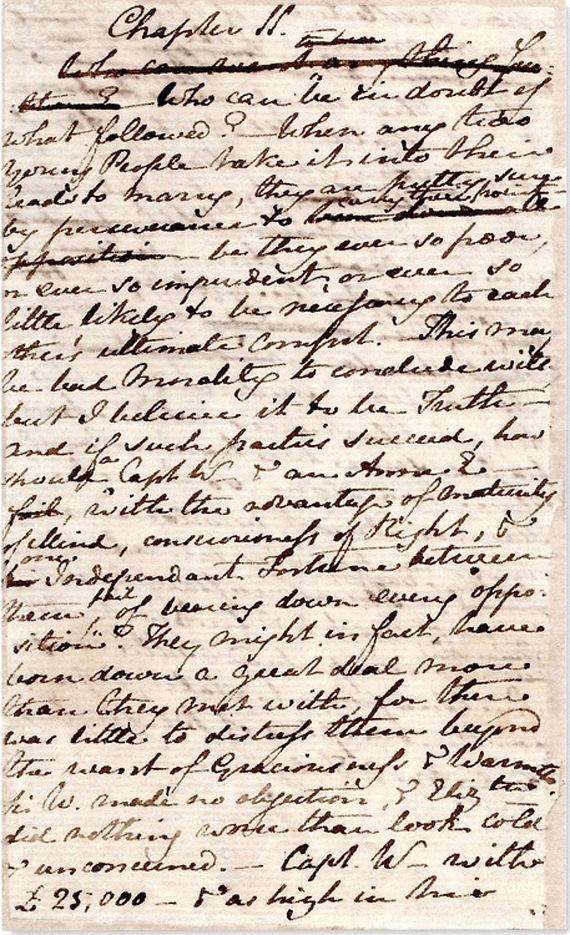 Chapter 11.
Who can be in doubt of
what followed? — When any two
young People take it into their
heads to marry, they are pretty sure
by perseverance to carry their point—
be they ever so poor,
or ever so imprudent, or ever so
little likely to be necessary to each
other's ultimate comfort. This may
be bad Morality to conclude with,
but I believe it to be Truth—
and if such parties succeed, how
should a Capt W— & an Anne E—
fail, with the advantage of maturity
of Mind, consciousness of Right, &
one Independant Fortune between
them fail of bearing down every oppo:
sition? They might in fact, have
born down a great deal more
than they met with, for there
was little to distress them beyond
the want of Graciousness & Warmth.
Sir W. made no objection, & Elizth
did nothing worse than look cold
& unconcerned. — Capt. W— with
£25,000 — & as high in his